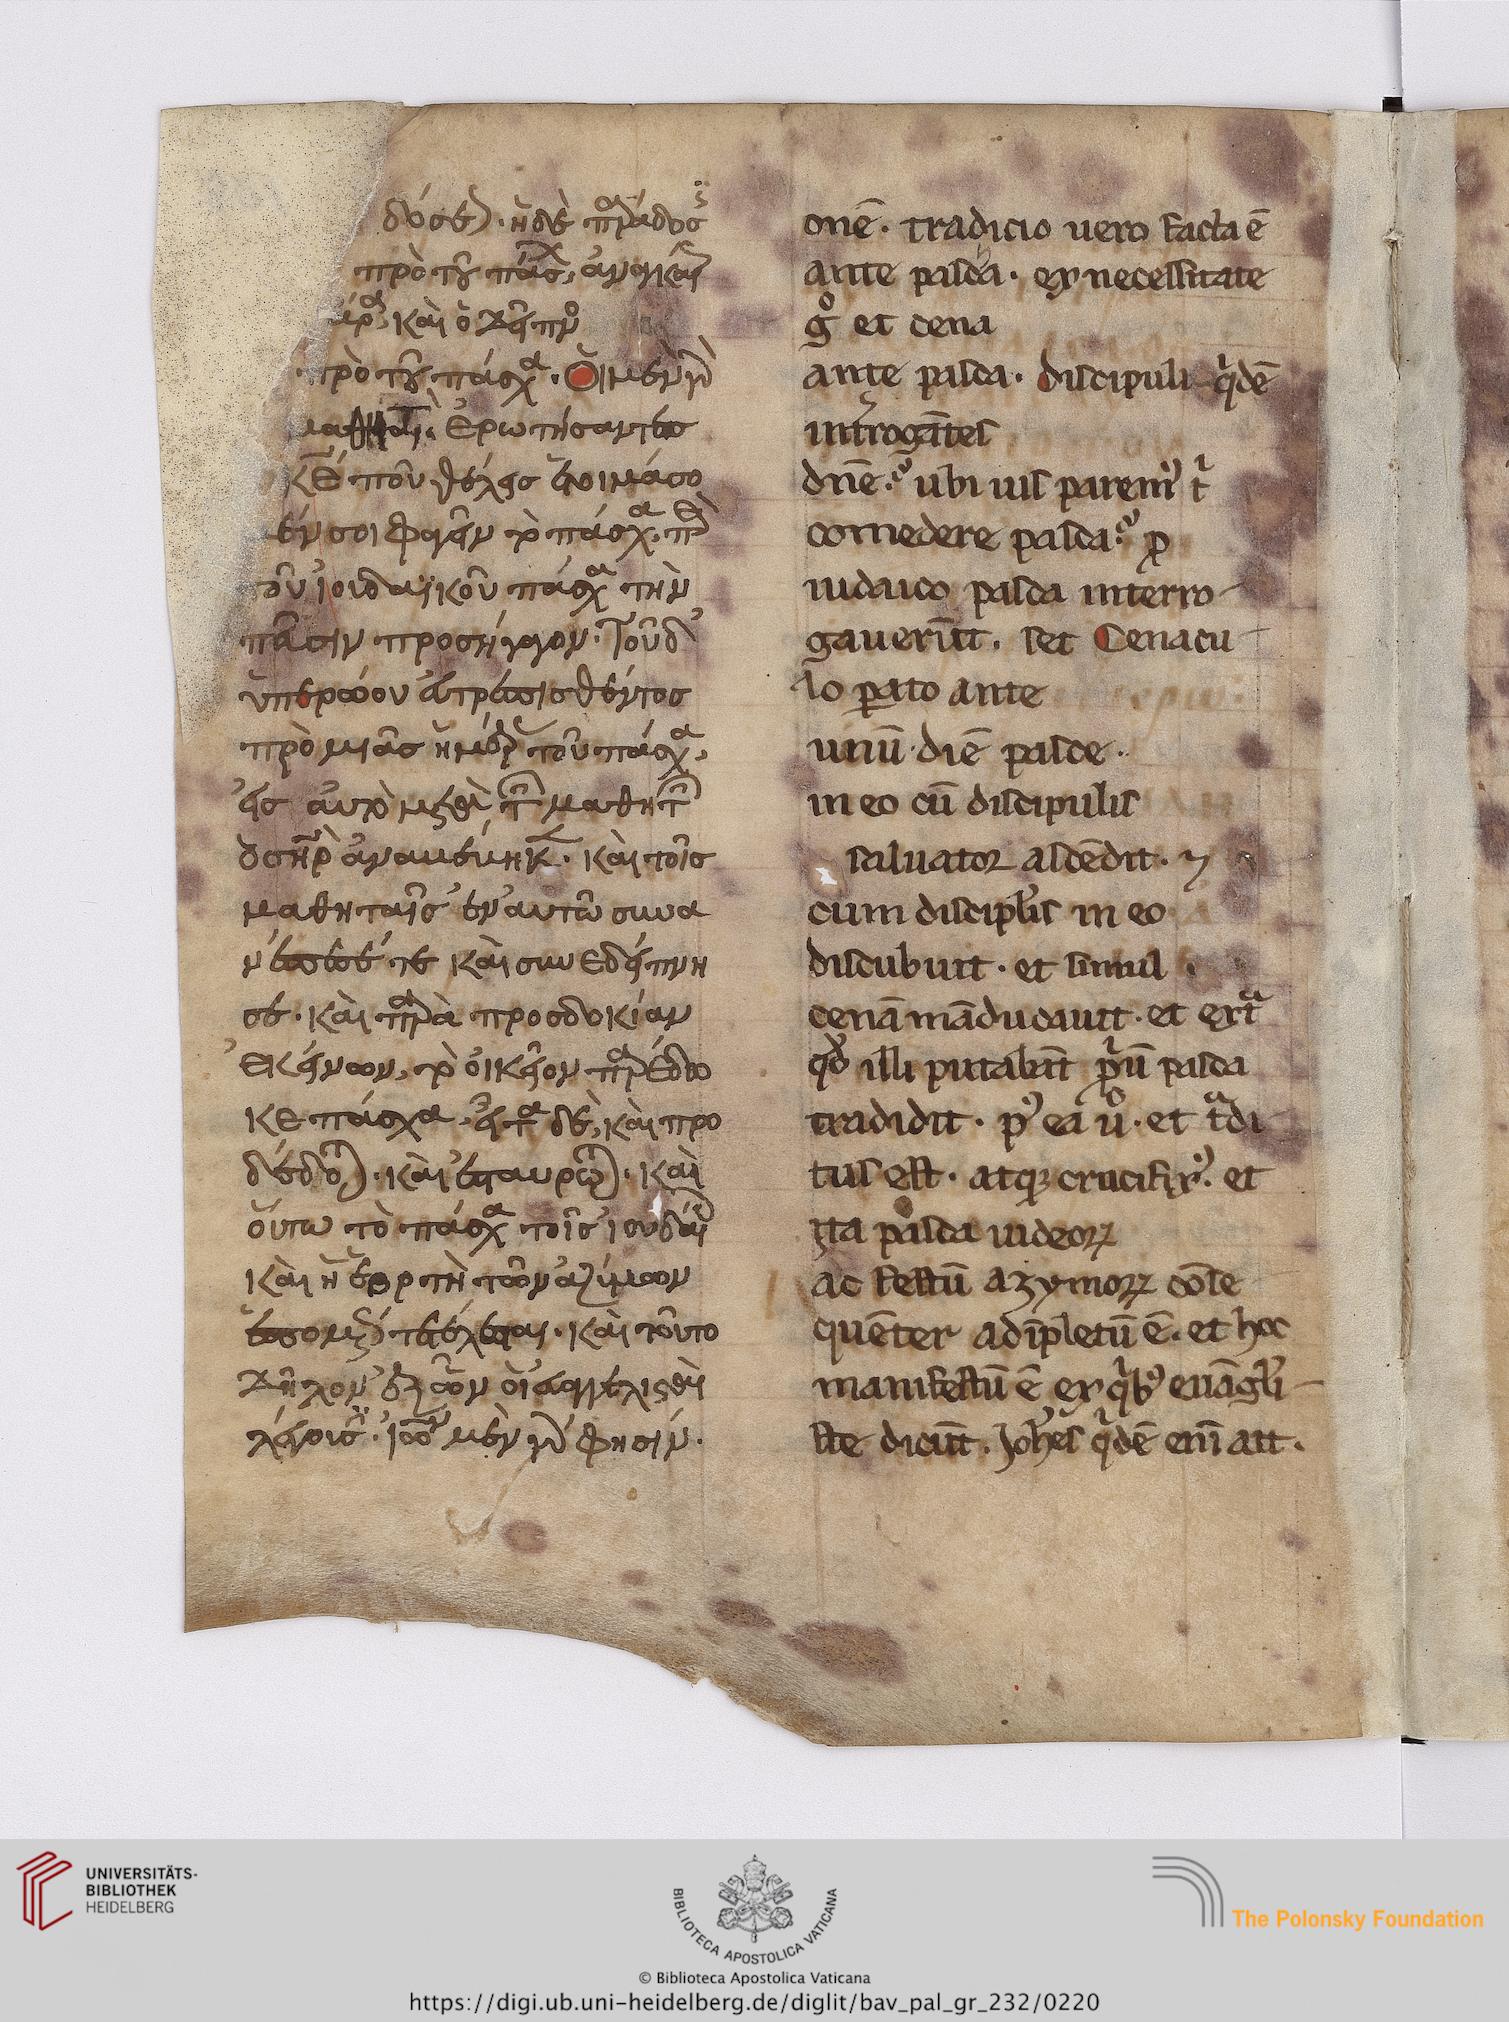 δόσεως· ἡ δὲ παράδοσις
πρὸ τοῦ πάσχα, ἀναγκαίως
ἄρα καὶ ὁ δεῖπνος
πρὸ τοῦ πάσχα· Οἱ μὲν γὰρ
μαθηταὶ, ἐρωτήσαντες
κ̅ε̅ ποῦ θέλεις ἑτοιμάσο
μέν σοι φαγεῖν τὸ πάσχα, περὶ
τοῦ ἰουδαϊκοῦ πάσχα τὴν
προσήγαγον· Τοῦ δ'
ὑπερώου εὐτρεπισθέντος
πρὸ μιᾶς ἡμέρας τοῦ πάσχα,
εἰς αὐτὸ μετὰ τῶν μαθητῶν
ὁ σ̅η̅ρ̅ καὶ τοῖς
μαθηταῖς ἐν αὐτῷ συνα
νέπεσέ τε καὶ συνεδείπνη
σε· καὶ παρὰ προσδοκίαν
ἐκείνων, τὸ οἰκεῖον παρέδω
κε πάσχα, εἶτα δὲ, καὶ προ
δέδοται· καὶ ἐσταύρωται· καὶ
οὕτω τὸ πάσχα τοῖς ἰουδαίοις
καὶ ἡ ἑορτὴ τῶν ἀζύμων
ἑπομένως τετέλεσται· καὶ τοῦτο
δῆλον ἐξ ὧν οἱ εὐαγγελισταὶ
λέγουσιν· ἰω̅ μὲν γὰρ φησίν·
onē· tradicio uero facta ē
ante pasca· ex necessitate
g̊ et cena
ante pasca· discipuli q̇dē
int̓rogātes
dn̄e· ubi uis parem᾿ t̓
comedere pasca· p
iudaico pasca interro-
gauerūt, set Cenacu-
lo parato ante
unū diē pasce·
in eo cū discipulis
saluator ascēdit· ⁊
cum discipl̓is in eo
discubuit· et simul
cenā māducauit· et ext̓a
qđ illi putabāt p̓ū pasca
tradidit· p᾿ ea ů· et t̓adi
tus est· atqꝫ crucifix᾿· et
ita pasca iudeoꝝ
ac festū azymoꝝ cōse
quēter adīpletū ē· et hoc
manifestū ē ex q̓b᾿ euāgl̓i-
ste dicūt· Joħes q̓dē enī ait·
UNIVERSITÄTS-
BIBLIOTHEK
HEIDELBERG
BIBLIOTECA APOSTOLICA VATICANA
The Polonsky Foundation
© Biblioteca Apostolica Vaticana
https://digi.ub.uni-heidelberg.de/diglit/bav_pal_gr_232/0220